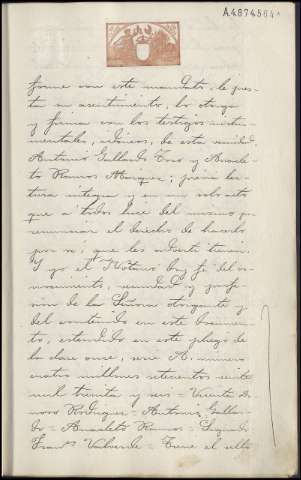 A4874504
forme con este mandato, le pres-
ta su asentimiento, lo otorga
y firma con los testigos instru-
mentales, idóneos, de esta vecindad,
Antonio Gallardo Toro y Anacle-
to Ramos Marquez; previa lec-
tura íntegra y en un solo acto
que a todos hice del mismo por
renunciar el derecho de hacerlo
por sí, que les advertí tenían.
Y yo el Notario doy fe del co-
nocimiento, vecindad y profe-
sión de la Señora otorgante y
del contenido en este documen-
to, extendido en este pliego de
la clase once, serie A. número
cuatro millones setecientos
mil treinta y seis = Vicenta
Rodriguez = Antonio Gallar-
do = Anacleto Ramos = Signado
Franco Valverde = Tiene el sello